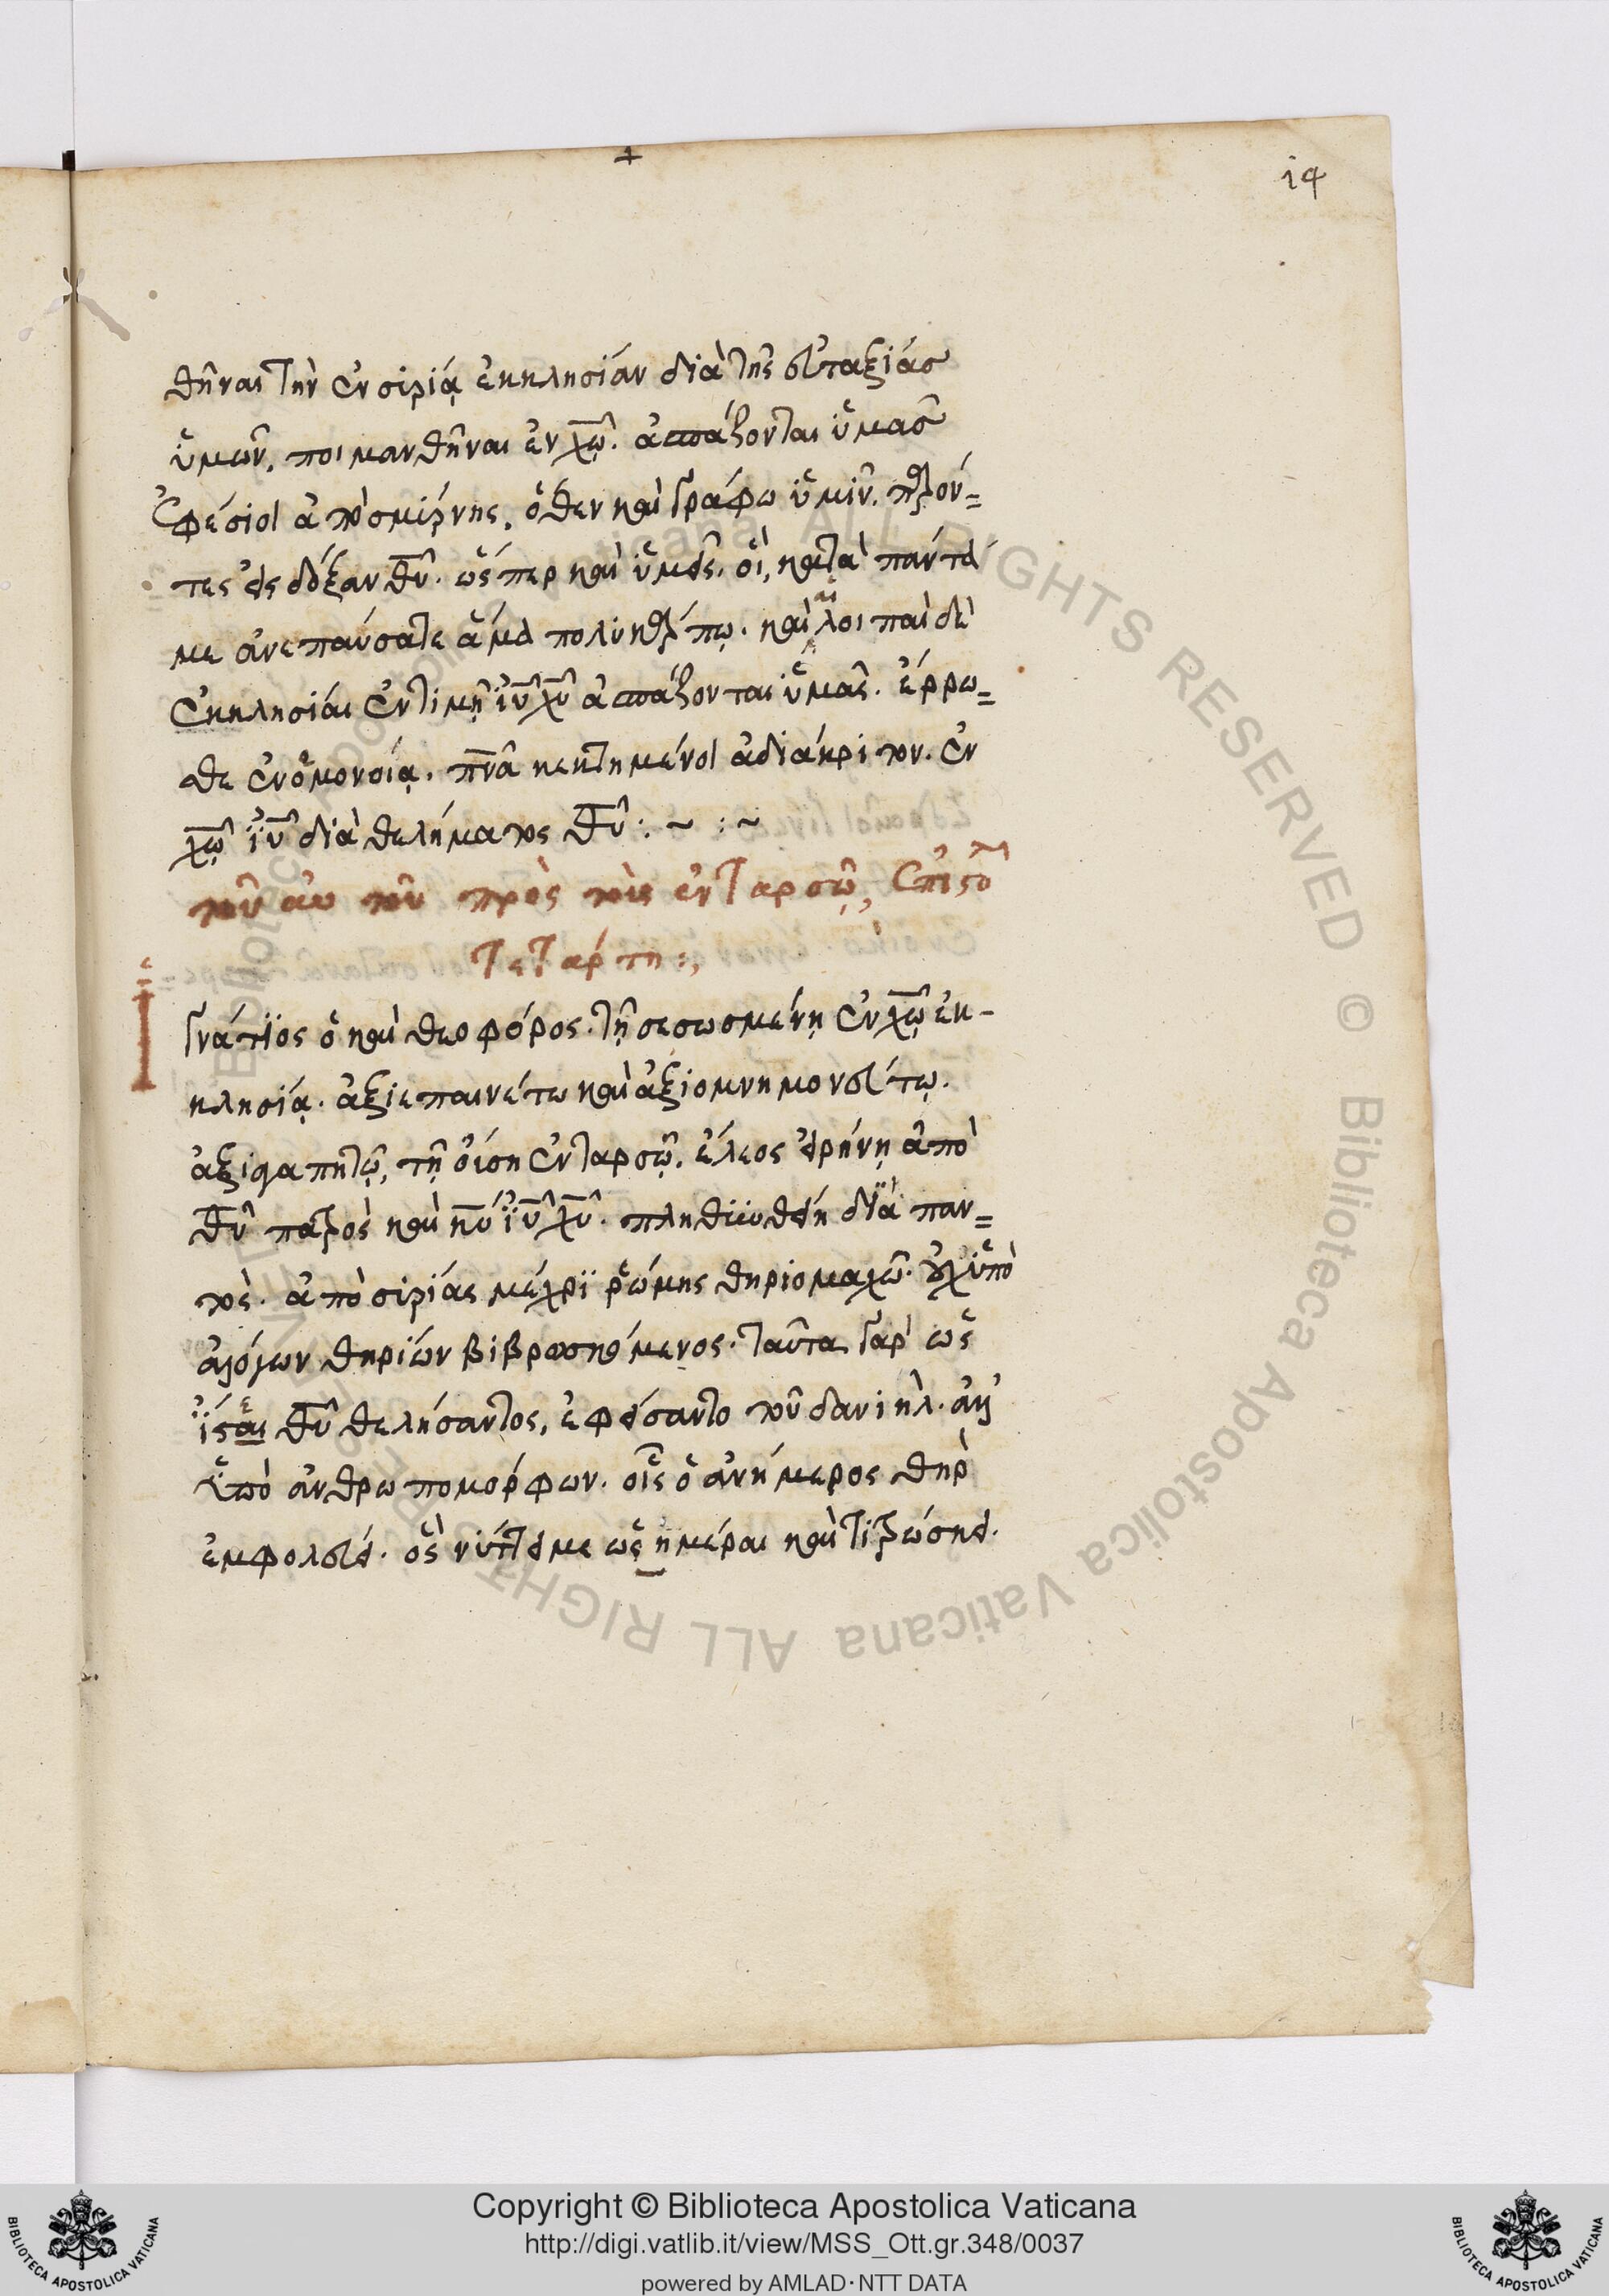 +
14
θῆναι τὴν ἐν σιρίᾳ ἐκκλησίαν διὰ τῆς εὐταξίας
ὑμῶν, ποιμανθῆναι ἐν χ̅ῶ̅. ἀσπάζονται ὑμᾶς
Ἐφέσιοι ἀπὸ σμίρνης, ὅθεν καὶ γράφω ὑμῖν.
τες εἰς δόξαν θ̅υ̅. ὥσπερ καὶ ὑμεῖς. οἳ, κατὰ πάντα
με ἀνεπαύσατε ἅμα πολυκάρπῳ. καὶ αἱ λοιπαὶ δὲ
ἐκκλησίαι ἐν τιμῇ ι̅υ̅ χ̅υ̅ ἀσπάζονται ὑμᾶς. ἔρρω=
θε ἐν ὁμονοίᾳ. π̅ν̅α̅ κεκτημένοι ἀδιάκριτον. ἐν
χ̅ῶ̅ ι̅υ̅ διὰ θελήματος θ̅υ̅ : ~ : ~
τοῦ αὐτοῦ πρὸς τοὺς ἐν ταρσῷ, ἐπιστο
Τετάρτη :,
Ἰγνάτιος ὁ καὶ θεοφόρος. τῇ σεσωσμένῃ ἐν χ̅ῶ̅ ἐκ-
κλησίᾳ. ἀξιεπαινέτω καὶ ἀξιομνημονεύτῳ.
ἀξιαγαπητῷ, τῇ οὔσῃ ἐν ταρσῷ. ἔλεος εἰρήνη ἀπὸ
θ̅υ̅ πατρὸς καὶ κ̅υ̅ ι̅υ̅ χ̅υ̅. πληθυνθείη διὰ παν=
τός. ἀπὸ σιρίας μέχρι ῥώμης θηριομαχῶ. οὐχ ὑπὸ
ἀλόγων θηρίων βιβρωσκόμενος. ταῦτα γὰρ ὡς
ἴσται θ̅υ̅ θελήσαντος, ἐφείσαντο τοῦ δανιήλ.
ὑπὸ ἀνθρωπομόρφων. οἷς ὁ ἀνήμερος θὴρ
ἐμφολεύει. ὃς νύττει με ὡς ἡμέραι καὶ τιτρώσκει.
Copyright © Biblioteca Apostolica Vaticana
http://digi.vatlib.it/view/MSS_Ott.gr.348/0037
powered by AMLAD·NTT DATA